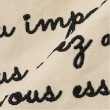 u imp
ez a
us
ous ess